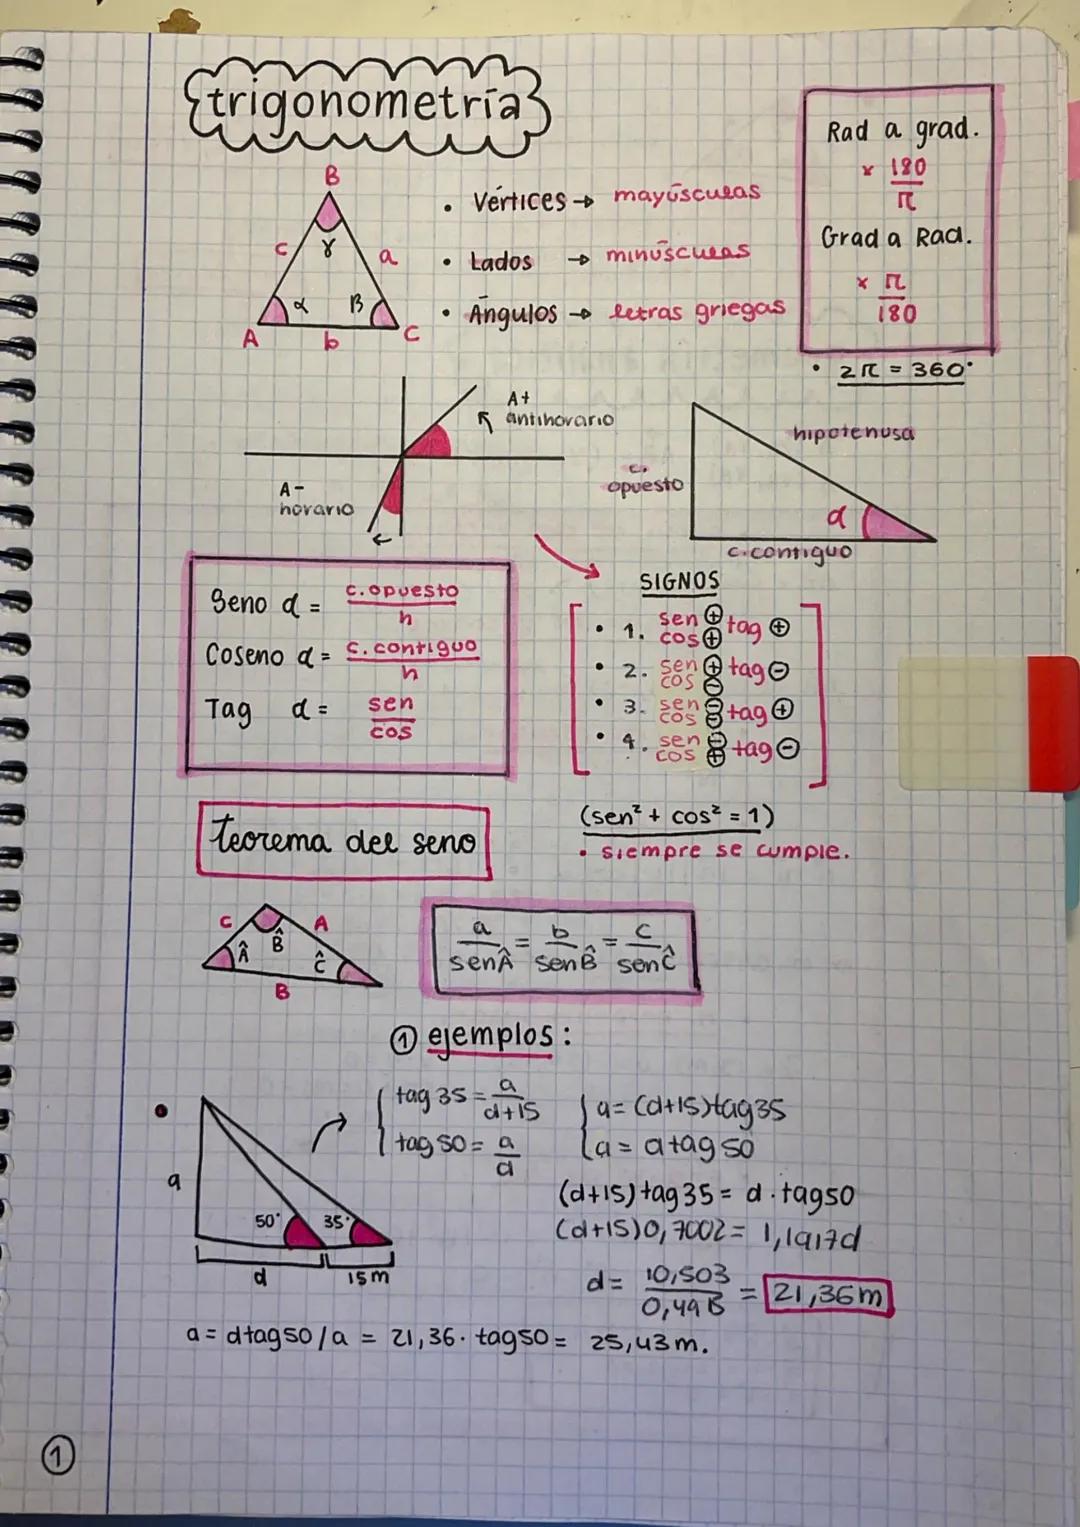 trigonometría
B
c
γ
a
α
β
A
b
C
• Vértices → mayúsculas
• Lados → minúsculas
• Ángulos → letras griegas
Rad a grad.
× 180
π
Grad a Rad.
× π
180
• 2π = 360°
A+
antihorario
A-
horario
hipotenusa
c.
opuesto
α
c.contiguo
Seno α = c.opuesto
h
Coseno α = c.contiguo
h
Tag α = sen
cos
SIGNOS
• 1. sen ⊕ tag ⊕
cos ⊕
• 2. sen ⊕ tag ⊖
cos ⊖
• 3. sen ⊖ tag ⊕
cos ⊖
• 4. sen ⊖ tag ⊖
cos ⊕
(sen² + cos² = 1)
• siempre se cumple.
teorema del seno
C
A
Â
B̂
Ĉ
B
a = b = c
senÂ senB̂ senĈ
① ejemplos:
a
50°
35°
d
15m
tag 35 = a
d+15
tag 50 = a
d
a = (d+15)tag35
a = dtag 50
(d+15)tag35 = d . tag50
(d+15)0,7002 = 1,1917d
d = 10,503 = 21,36m
0,4915
a = dtag50/a = 21,36 · tag50 = 25,43m.
①